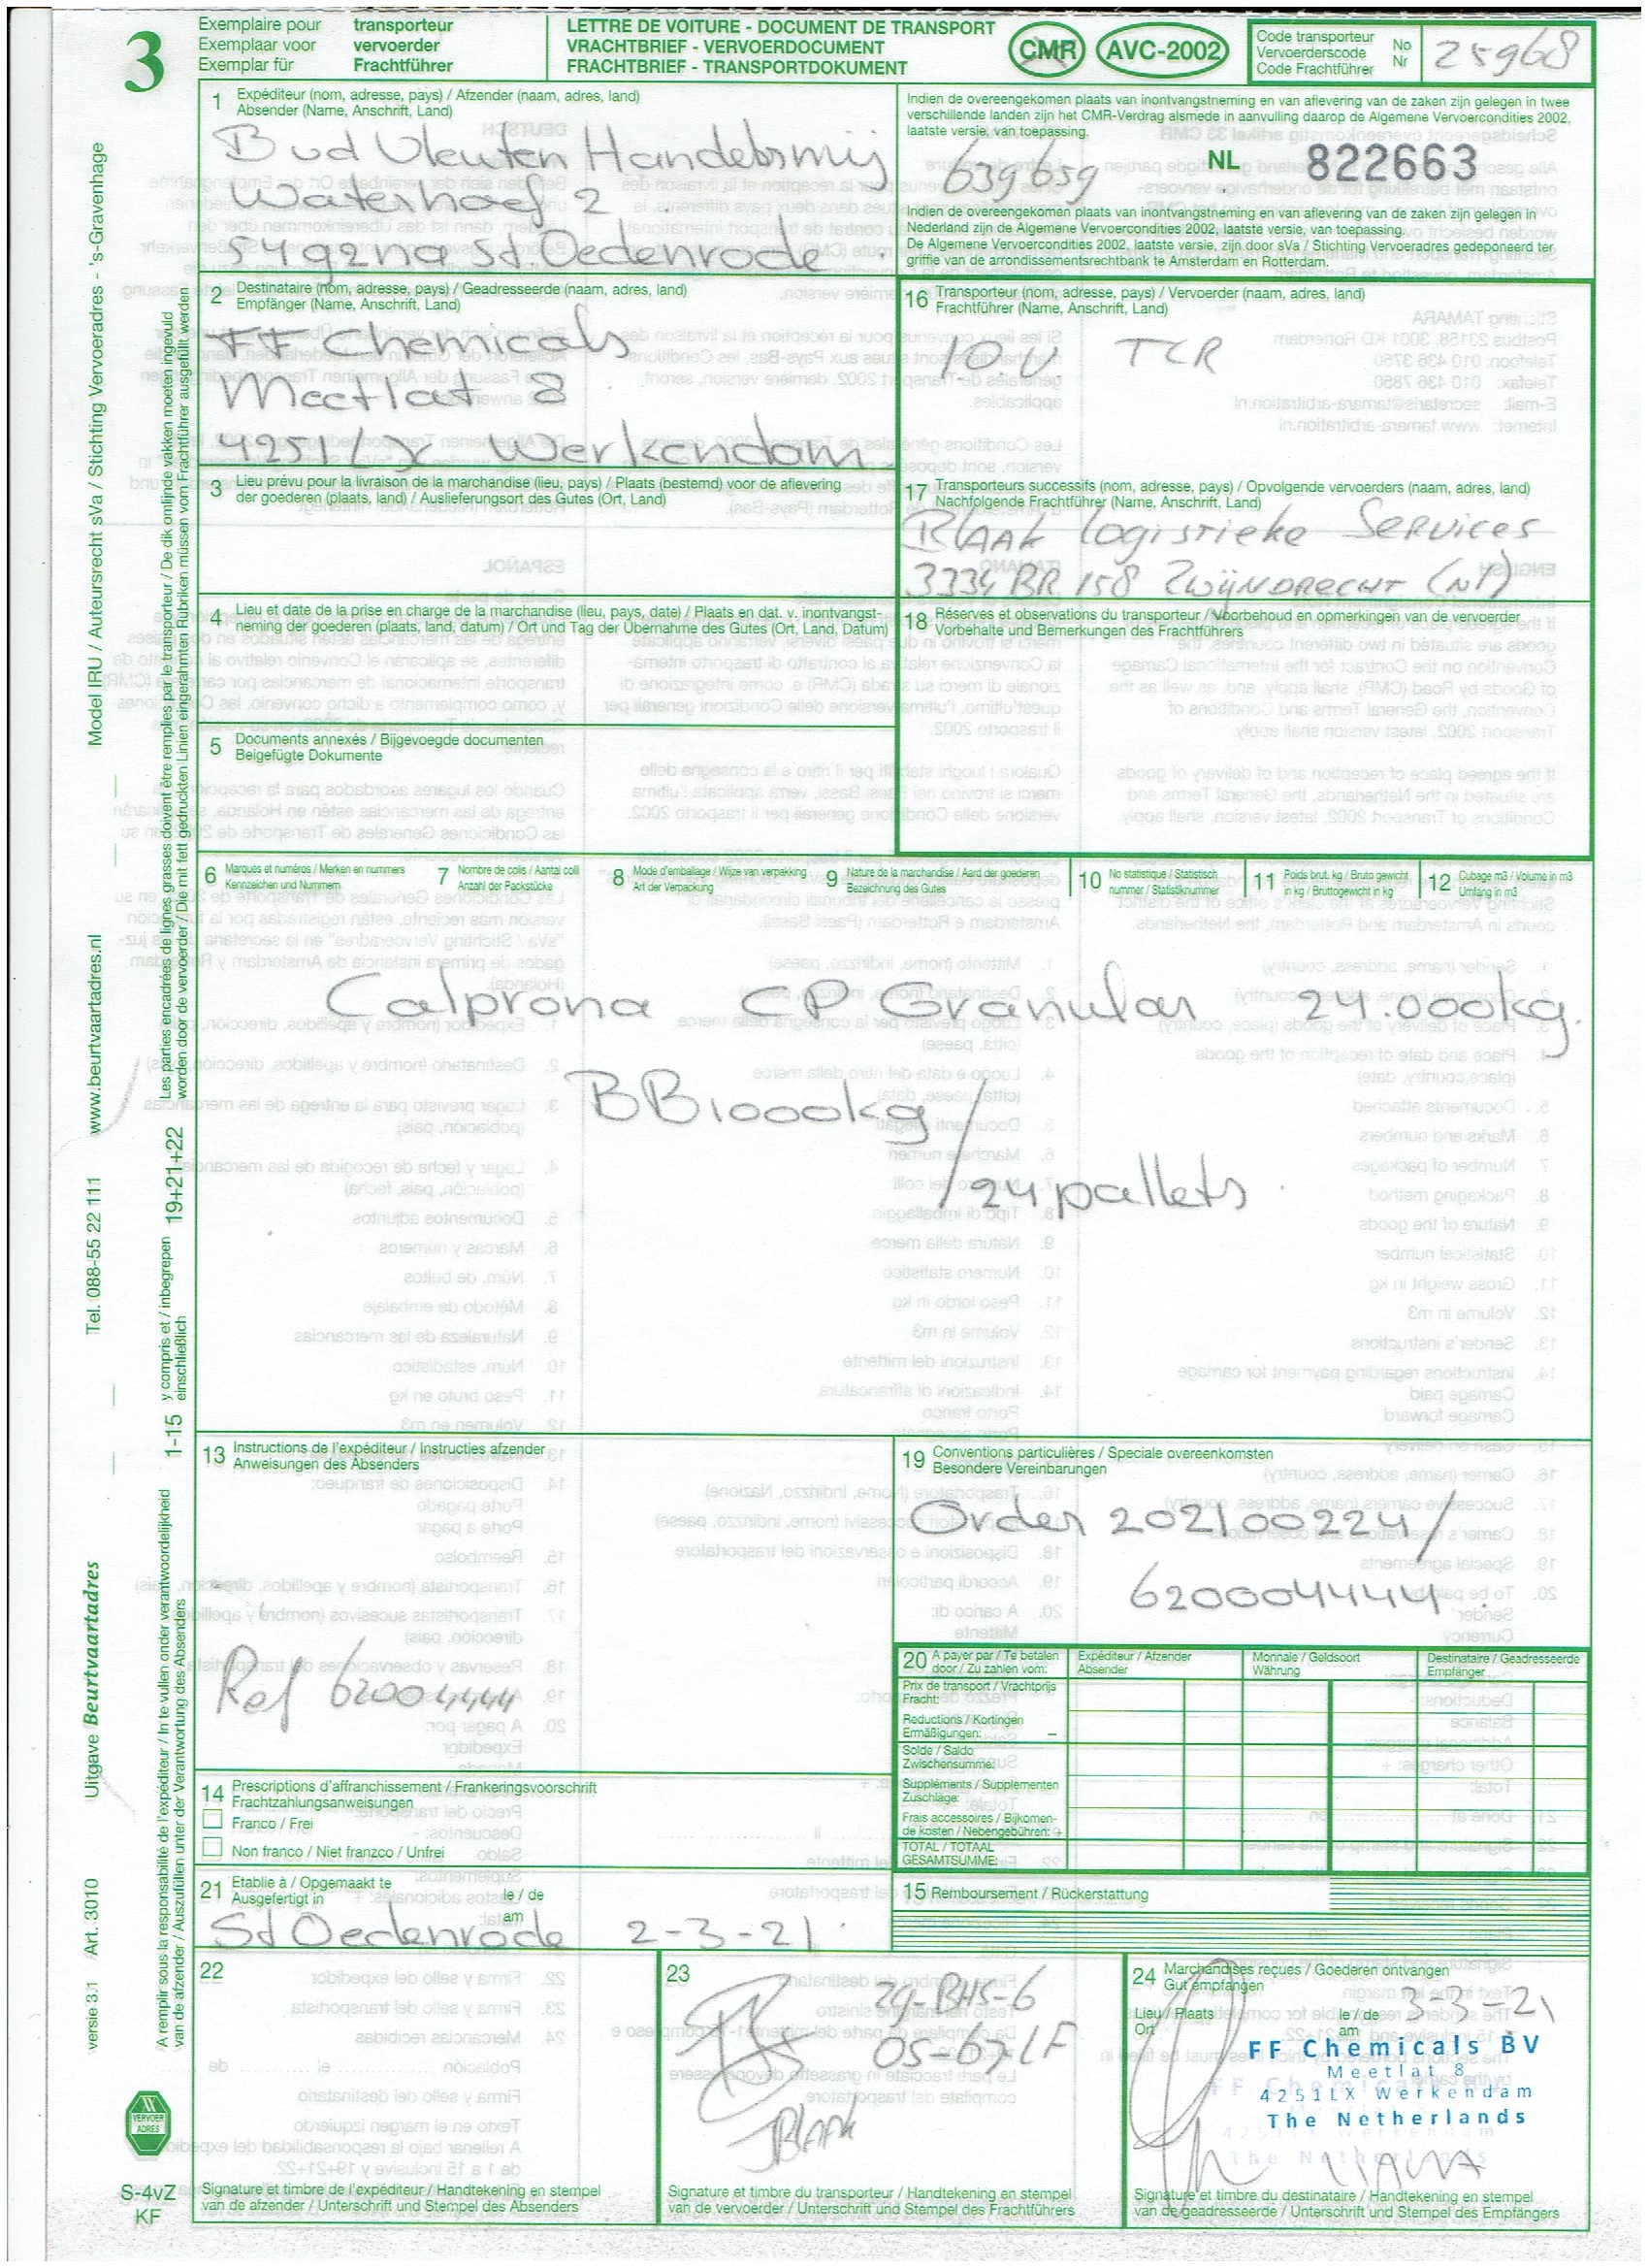 3
Exemplaire pour transporteur
Exemplaar voor vervoerder
Exemplar für Frachtführer
LETTRE DE VOITURE - DOCUMENT DE TRANSPORT
VRACHTBRIEF - VERVOERDOCUMENT
FRACHTBRIEF - TRANSPORTDOKUMENT
CMR
AVC-2002
Code transporteur
Vervoerderscode
Code Frachtführer
No
Nr
25968
1 Expéditeur (nom, adresse, pays) / Afzender (naam, adres, land)
Absender (Name, Anschrift, Land)
Bud Vleuten Handelsmij
Waterhoef 2
5492na St Oedenrode
Indien de overeengekomen plaats van inontvangstneming en van aflevering van de zaken zijn gelegen in twee
verschillende landen zijn het CMR-Verdrag alsmede in aanvulling daarop de Algemene Vervoercondities 2002,
laatste versie, van toepassing.
NL 822663
639659
Indien de overeengekomen plaats van inontvangstneming en van aflevering van de zaken zijn gelegen in
Nederland zijn de Algemene Vervoercondities 2002, laatste versie, van toepassing.
De Algemene Vervoercondities 2002, laatste versie, zijn door sVa / Stichting Vervoeradres gedeponeerd ter
griffie van de arrondissementsrechtbank te Amsterdam en Rotterdam.
2 Destinataire (nom, adresse, pays) / Geadresseerde (naam, adres, land)
Empfänger (Name, Anschrift, Land)
FF Chemicals
Meetlat 8
4251 Lx Werkendam
16 Transporteur (nom, adresse, pays) / Vervoerder (naam, adres, land)
Frachtführer (Name, Anschrift, Land)
TCR
3 Lieu prévu pour la livraison de la marchandise (lieu, pays) / Plaats (bestemd) voor de aflevering
der goederen (plaats, land) / Auslieferungsort des Gutes (Ort, Land)
17 Transporteurs successifs (nom, adresse, pays) / Opvolgende vervoerders (naam, adres, land)
Nachfolgende Frachtführer (Name, Anschrift, Land)
Blaak logistieke Services
3334 BR 158 Zwijndrecht (nl)
4 Lieu et date de la prise en charge de la marchandise (lieu, pays, date) / Plaats en dat. v. inontvangst-
neming der goederen (plaats, land, datum) / Ort und Tag der Übernahme des Gutes (Ort, Land, Datum)
18 Réserves et observations du transporteur / Voorbehoud en opmerkingen van de vervoerder
Vorbehalte und Bemerkungen des Frachtführers
5 Documents annexés / Bijgevoegde documenten
Beigefügte Dokumente
6 Marques et numéros / Merken en nummers
Kennzeichen und Nummern
7 Nombre de colis / Aantal colli
Anzahl der Packstücke
8 Mode d'emballage / Wijze van verpakking
Art der Verpackung
9 Nature de la marchandise / Aard der goederen
Bezeichnung des Gutes
10 No statistique / Statistisch
nummer / Statistiknummer
11 Poids brut, kg / Bruto gewicht
in kg / Bruttogewicht in kg
12 Cubage m3 / Volume in m3
Umfang in m3
Calprona CP Granular 24.000kg.
BB1000kg
/24pallets
13 Instructions de l'expéditeur / Instructies afzender
Anweisungen des Absenders
Ref 62004444
19 Conventions particulières / Speciale overeenkomsten
Besondere Vereinbarungen
Order 202100224/
620004444
20 A payer par / Te betalen
door / Zu zahlen vom:
Expéditeur / Afzender
Absender
Monnaie / Geldsoort
Währung
Destinataire / Geadresseerde
Empfänger
Prix de transport / Vrachtprijs
Fracht:
Reductions / Kortingen
Ermäßigungen: –
Solde / Saldo
Zwischensumme:
Suppléments / Supplementen
Zuschläge:
Frais accessoires / Bijkomen-
de kosten / Nebengebühren: +
TOTAL / TOTAAL
GESAMTSUMME:
14 Prescriptions d'affranchissement / Frankeringsvoorschrift
Frachtzahlungsanweisungen
Franco / Frei
Non franco / Niet franzco / Unfrei
21 Etablie à / Opgemaakt te le / de
Ausgefertigt in am
St Oedenrode 2-3-21
15 Remboursement / Rückerstattung
22
Signature et timbre de l'expéditeur / Handtekening en stempel
van de afzender / Unterschrift und Stempel des Absenders
23
29-BHS-6
05-67LF
JBlaak
Signature et timbre du transporteur / Handtekening en stempel
van de vervoerder / Unterschrift und Stempel des Frachtführers
24 Marchandises reçues / Goederen ontvangen
Gut empfangen
Lieu / Plaats le / de
Ort am
3-3-21
FF Chemicals BV
Meetlat 8
4251LX Werkendam
The Netherlands
Signature et timbre du destinataire / Handtekening en stempel
van de geadresseerde / Unterschrift und Stempel des Empfängers
Model IRU / Auteursrecht sVa / Stichting Vervoeradres - 's-Gravenhage
www.beurtvaartadres.nl
Tel. 088-55 22 111
Uitgave Beurtvaartadres
Art. 3010
versie 3.1
Les parties encadrées de lignes grasses doivent être remplies par le transporteur / De dik omlijnde vakken moeten ingevuld
worden door de vervoerder / Die mit fett gedruckten Linien eingerahmten Rubriken müssen vom Frachtführer ausgefüllt werden
1-15 y compris et / inbegrepen 19+21+22
einschließlich
A remplir sous la responsabilité de l'expéditeur / In te vullen onder verantwoordelijkheid
van de afzender / Auszufüllen unter der Verantwortung des Absenders
VERVOER
ADRES
S-4vZ
KF